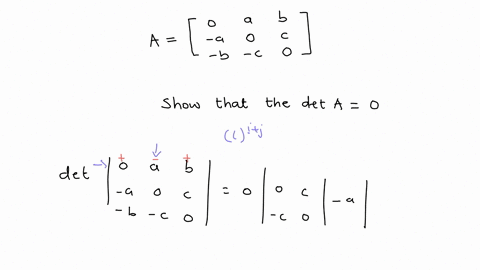 A = [ 0 a b
-a 0 c
-b -c 0 ]
Show that the det A = 0
(1)^{i+j}
det → | 0 a b | = 0 | 0 c | - a |
-a 0 c -c 0
-b -c 0
+ - +